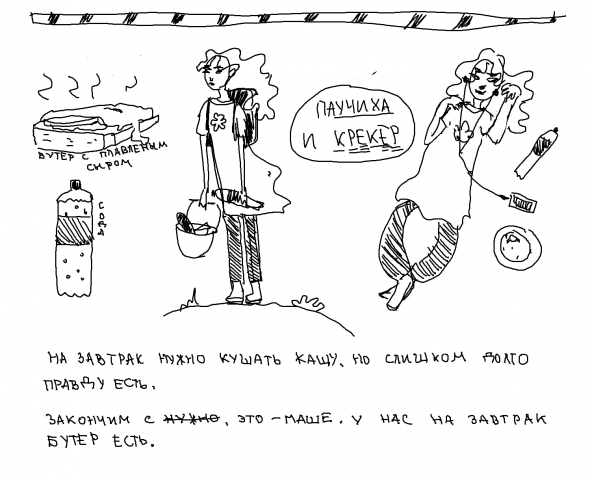 БУТЕР С ПЛАВЛЕНЫМ
СЫРОМ
СОДА
ПАУЧИХА
И КРЕКЕР
НА ЗАВТРАК НУЖНО КУШАТЬ КАЩУ, НО СЛИШКОМ ДОЛГО
ПРАВДУ ЕСТЬ.
ЗАКОНЧИМ С НУЖНО, ЭТО - МАШЕ. У НАС НА ЗАВТРАК
БУТЕР ЕСТЬ.